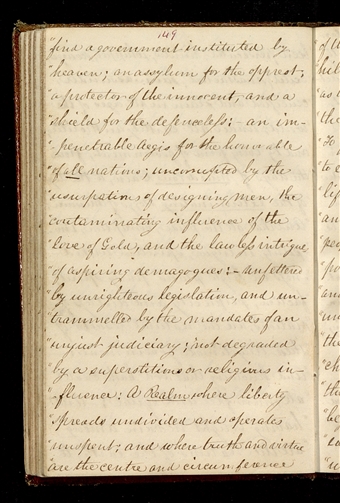 149
"find a government instituted by
"heaven; an assylum for the opprest;
"a protector of the innocent, and a
"shield for the defenceless: - an im-
"penetrable aegis for the honorable
"of all nations; uncorrupted by the
"usurpations of designing men, the
"contaminating influence of the
"love of Gold, and the lawless intrigue
"of aspiring demagogues: - unfettered
"by unrighteous legislation, and un-
"trammelled by the mandates of an
"unjust judiciary; not degraded
"by a superstitious or religious in-
"fluence: A Realm where liberty
"spreads undivided and operates
"unspent; and where truth and virtue
"are the centre and circumference